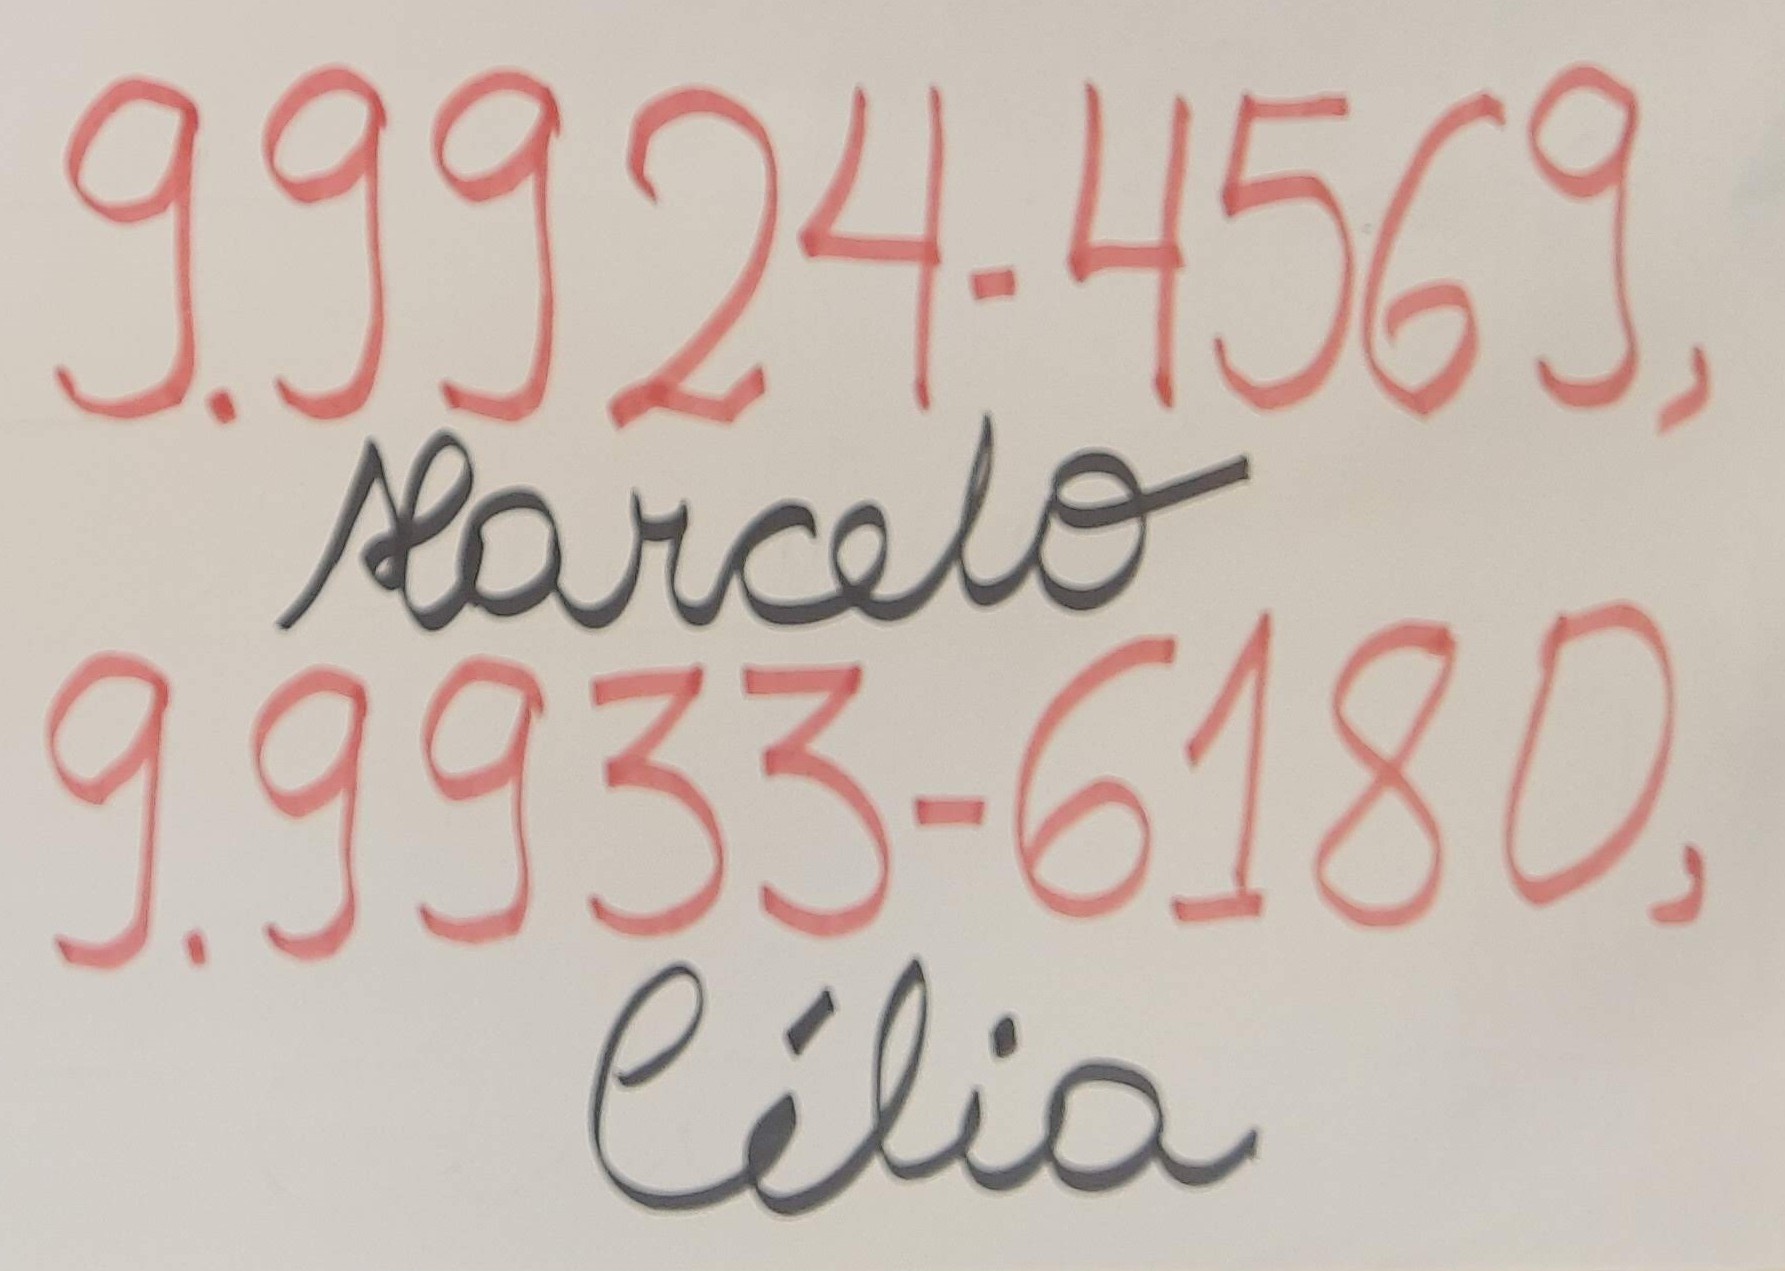 9.9924-4569,
Marcelo
9.9933-6180,
Célia